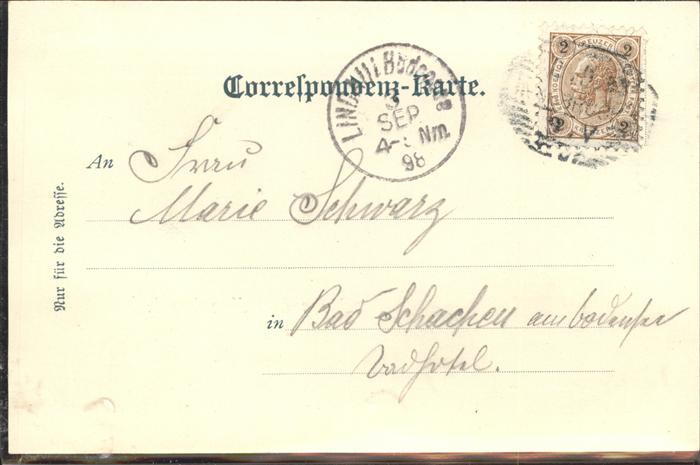 Correspondenz-Karte.
2 KREUZER 2
2 2
LINDAU i Bodensee
SEP
4-5 Nm.
98
An Frau
Marie Schwarz
in Bad Schachen am bodensee
badhotel.
Nur für die Adresse.